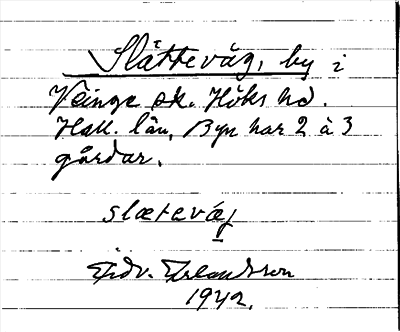 Slätteväg, by i
Veinge sk. Höks hd.
Hall. län, Byn har 2 à 3
gårdar.
slæteväg
Erlandsson
1942.